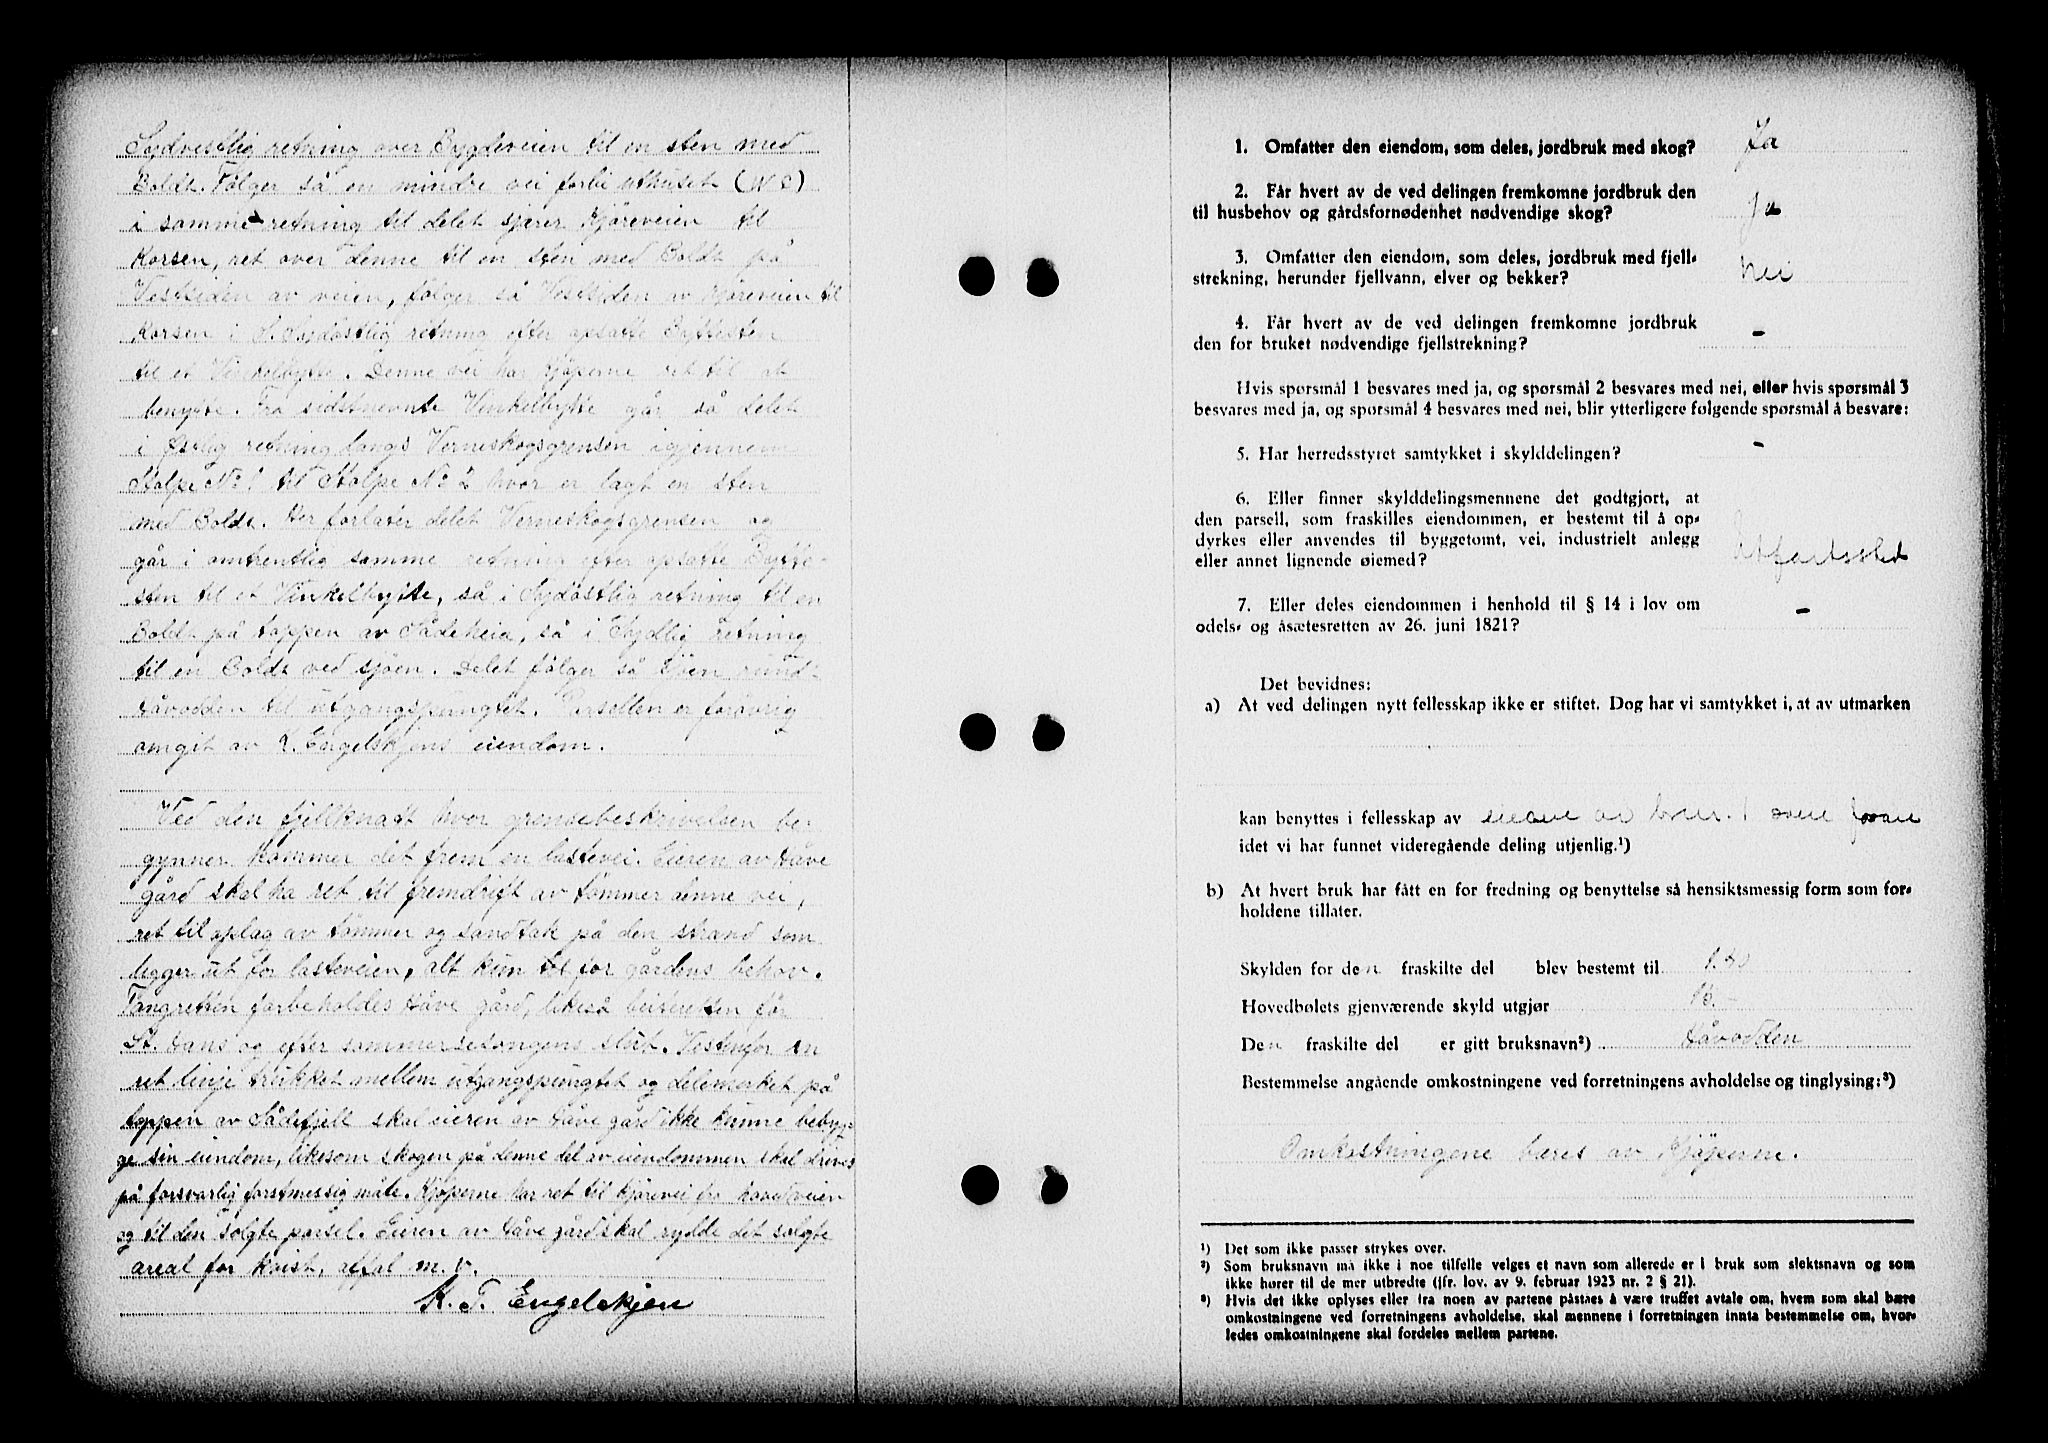 Sydvestlig retning over Bygdeveien til en sten med
Boldt. Følger så en mindre vei forbi uthuset (W C)
i samme retning til delet sjærer Kjøreveien til
Korsen, ret over denne til en sten med Boldt på
Vestsiden av veien, følger så Vestsiden av Kjøreveien til
Korsen i S. Sydøstlig retning efter opsatte Byttesten
til et Vinkelbytte. Denne vei har Kjøperne ret til at
benytte. Fra sidstnevnte Vinkelbytte går så delet
i Østlig retning langs Verneskogsgrensen igjennem
Stolpe No 1 til Stolpe No 2 hvor er lagt en sten
med Boldt. Her forlater delet Verneskogsgrensen og
går i omtrentlig samme retning efter opsatte Bytte-
sten til et Vinkelbytte, så i Sydøstlig retning til en
Boldt på toppen av Sådeheia, så i Sydlig retning
til en Boldt ved sjøen. Delet følger så sjøen rundt
Håvodden til utgangspungtet. Parsellen er forøvrig
omgit av K. Engelskjøns eiendom.
Ved den fjellknatt hvor grensebeskrivelsen be-
gynner kommer det frem en lastevei. Eieren av Håve
gård skal ha ret til fremdrift av tømmer denne vei,
ret til oplag av tømmer og sandtak på den strand som
ligger ut for lasteveien, alt kun til for gårdens behov.
Tangretten forbeholdes Håve gård, likeså beiteretten før
St. Hans og efter sommersesongens slut. Vestenfor en
ret linje trukket mellem utgangspungtet og delemerket på
toppen av Sådefjell skal eieren av Håve gård ikke kunne bebyg-
ge sin eiendom, likesom skogen på denne del av eiendommen skal drives
på forsvarlig forstmessig måte. Kjøperne har ret til kjørevei fra hovedveien
og til den solgte parsel. Eieren av Håve gård skal rydde det solgte
areal for kvist, affal m.v.
K. T. Engelskjøn
1. Omfatter den eiendom, som deles, jordbruk med skog? Ja
2. Får hvert av de ved delingen fremkomne jordbruk den
til husbehov og gårdsfornødenhet nødvendige skog? Ja
3. Omfatter den eiendom, som deles, jordbruk med fjell-
strekning, herunder fjellvann, elver og bekker? Nei
4. Får hvert av de ved delingen fremkomne jordbruk
den for bruket nødvendige fjellstrekning? -
Hvis spørsmål 1 besvares med ja, og spørsmål 2 besvares med nei, eller hvis spørsmål 3
besvares med ja, og spørsmål 4 besvares med nei, blir ytterligere følgende spørsmål å besvare:
5. Har herredsstyret samtykket i skylddelingen? -
6. Eller finner skylddelingsmennene det godtgjort, at
den parsell, som fraskilles eiendommen, er bestemt til å op-
dyrkes eller anvendes til byggetomt, vei, industrielt anlegg
eller annet lignende øiemed? Utfartssted
7. Eller deles eiendommen i henhold til § 14 i lov om
odels- og åsætesretten av 26. juni 1821? -
Det bevidnes:
a) At ved delingen nytt fellesskap ikke er stiftet. Dog har vi samtykket i, at av utmarken
kan benyttes i fellesskap av eierne av
idet vi har funnet videregående deling utjenlig.¹)
b) At hvert bruk har fått en for fredning og benyttelse så hensiktsmessig form som for-
holdene tillater.
Skylden for den fraskilte del blev bestemt til 1.80
Hovedbølets gjenværende skyld utgjør
Den fraskilte del er gitt bruksnavn²) Håvodden
Bestemmelse angående omkostningene ved forretningens avholdelse og tinglysing:³)
Omkostningene bæres av Kjøperne.
¹) Det som ikke passer strykes over.
²) Som bruksnavn må ikke i noe tilfelle velges et navn som allerede er i bruk som slektsnavn og som
ikke hører til de mer utbredte (jfr. lov. av 9. februar 1923 nr. 2 § 21).
³) Hvis det ikke oplyses eller fra noen av partene påstaes å være truffet avtale om, hvem som skal bære
omkostningene ved forretningens avholdelse, skal mennene i forretningen innta bestemmelse om, hvor-
ledes omkostningene skal fordeles mellem partene.